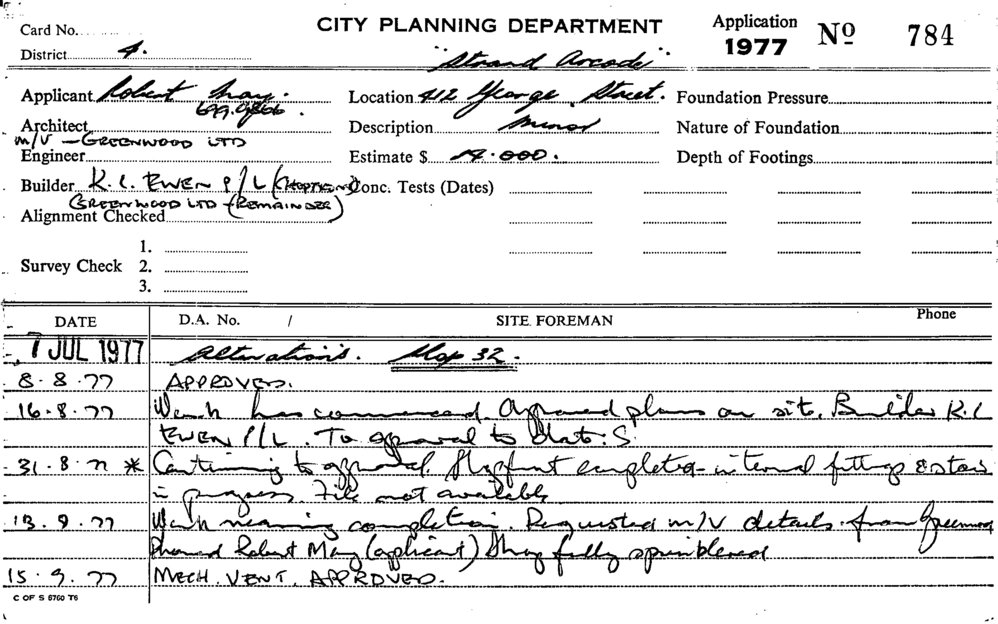 CITY PLANNING DEPARTMENT
Application 1977 No 784
Card No.
District 4.
"Strand Arcade"
Applicant Robert May.
699.9866.
Location 412 George Street.
Foundation Pressure
Architect
m/V - GREENWOOD LTD
Description Minor
Nature of Foundation
Engineer
Estimate $ 14.000.
Depth of Footings
Builder K. L. EWEN P/L
Conc. Tests (Dates)
GREENWOOD LTD - (REMAINDER)
Alignment Checked
1.
Survey Check 2.
3.
DATE D.A. No. / SITE FOREMAN Phone
7 JUL 1977 Alterations. Shop 32.
8.8.77 APPROVED.
16.8.77 Work has commenced. Approved plans on site. Builder K.L
EWEN P/L. To approval to date. S.
31.8.77 * Continuing to approval. Shopfront completed - internal fittings &
in progress. File not available
13.9.77 Work nearing completion. Requested m/V details from Greenwood
Phoned Robert May (applicant) Shop fully sprinklered
15.9.77 MECH. VENT. APPROVED.
C OF S 6760 T6